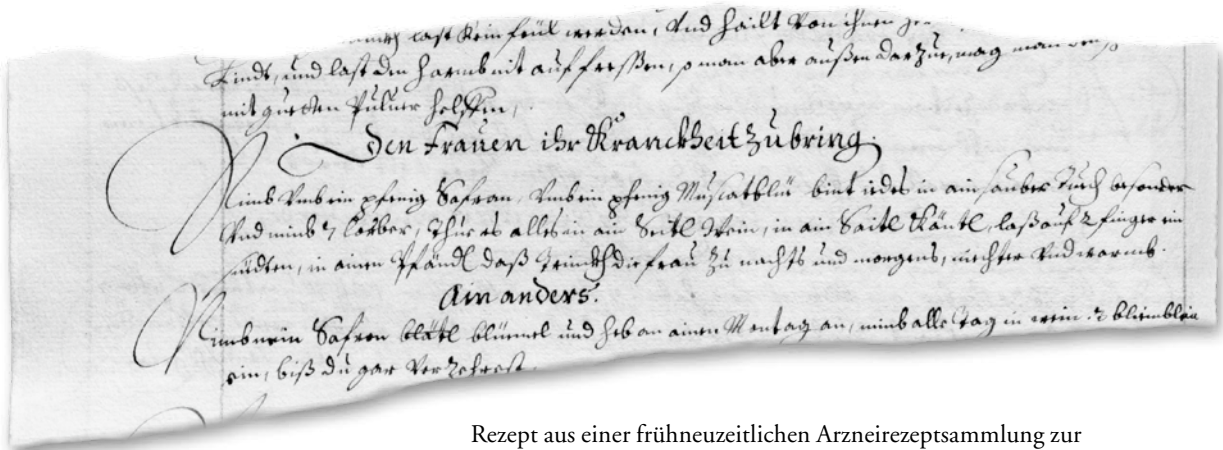 last kein feül werden, Vnd hailt Von ihnen
Kindt, und last den harmb nit auf fressen, so man aber außen darzue, mag man
mit gueten Puluer helffen,
Den Frauen ihr Kranckheit Zu bring.
Nimb Vmb ein pfenig Safran, Vmb ein pfenig Muscatblüe bint iedes in ain sauber Tuch besonder
Vnd nimb 7 Lorber, Thue es alles in ain Seitl Wein, in ain Saitl Käntl, laß auf 2 finger ein
sudten, in ainen Pfändl daß Trinckh die frau Zu nachts und morgens, niechter Vnd warmb.
Ain anders.
Nimb Safran blüemel und heb an ainen Montag an, nimb alle Tag in wein 2 bliemblein
ein, biß du gar Verzehrest.
Rezept aus einer frühneuzeitlichen Arzneirezeptsammlung zur